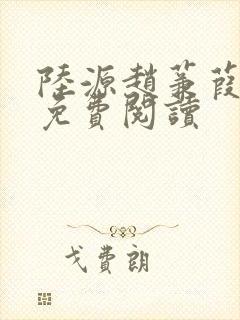 陸源趙蒹葭
免費閱讀
戈費朗